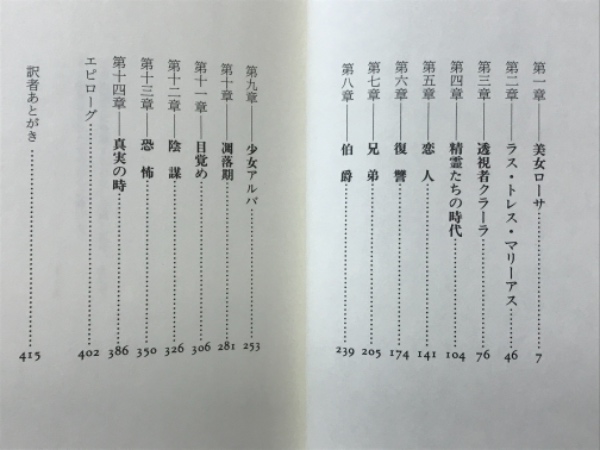 第一章――美女ローサ………7
第二章――ラス・トレス・マリーアス………46
第三章――透視者クラーラ………76
第四章――精霊たちの時代………104
第五章――恋人………141
第六章――復讐………174
第七章――兄弟………205
第八章――伯爵………239
第九章――少女アルバ………253
第十章――凋落期………281
第十一章――目覚め………306
第十二章――陰謀………326
第十三章――恐怖………350
第十四章――真実の時………386
エピローグ………402
訳者あとがき………415